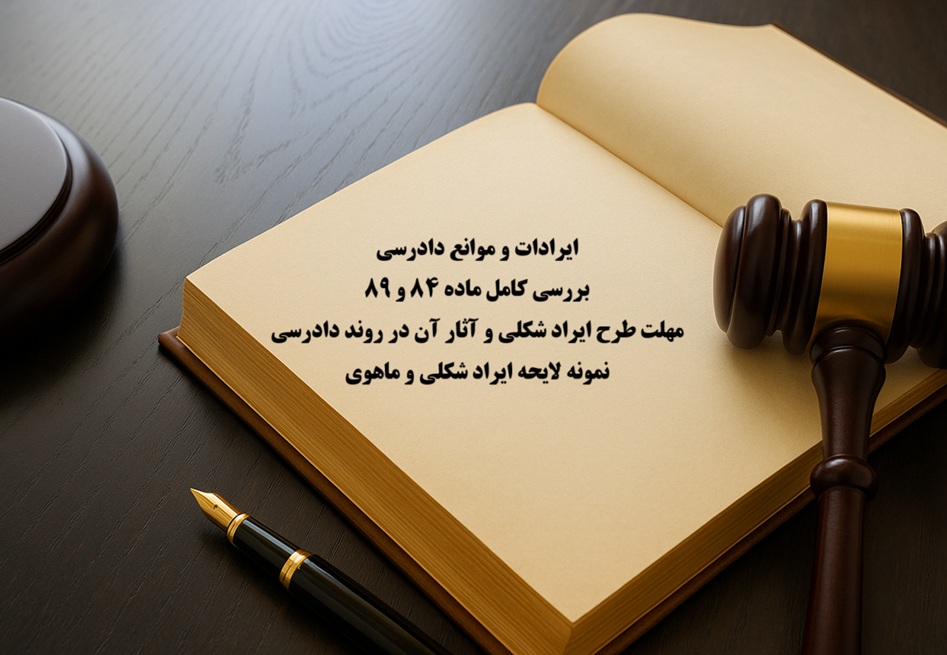 ایرادات و موانع دادرسی
بررسی کامل ماده ۸۴ و ۸۹
مهلت طرح ایراد شکلی و آثار آن در روند دادرسی
نمونه لایحه ایراد شکلی و ماهوی